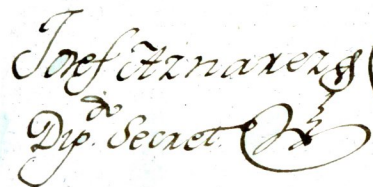 Josef Aznarez
Dip.do Secret.